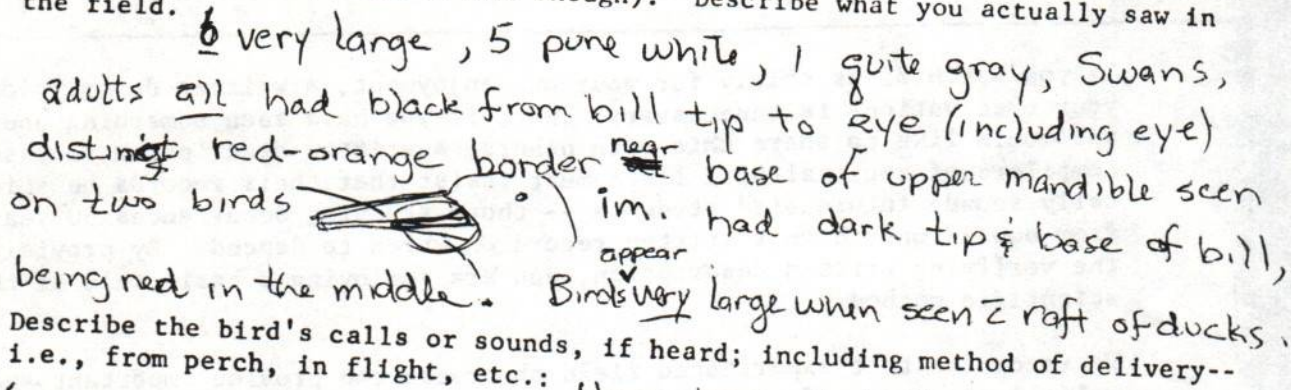 the field. Describe what you actually saw in
6 very large, 5 pure white, 1 quite gray, Swans,
adults all had black from bill tip to eye (including eye)
distinct red-orange border near base of upper mandible seen
on two birds im. had dark tip & base of bill,
being red in the middle. Birds appear very large when seen c raft of ducks.
Describe the bird's calls or sounds, if heard; including method of delivery--
i.e., from perch, in flight, etc.: